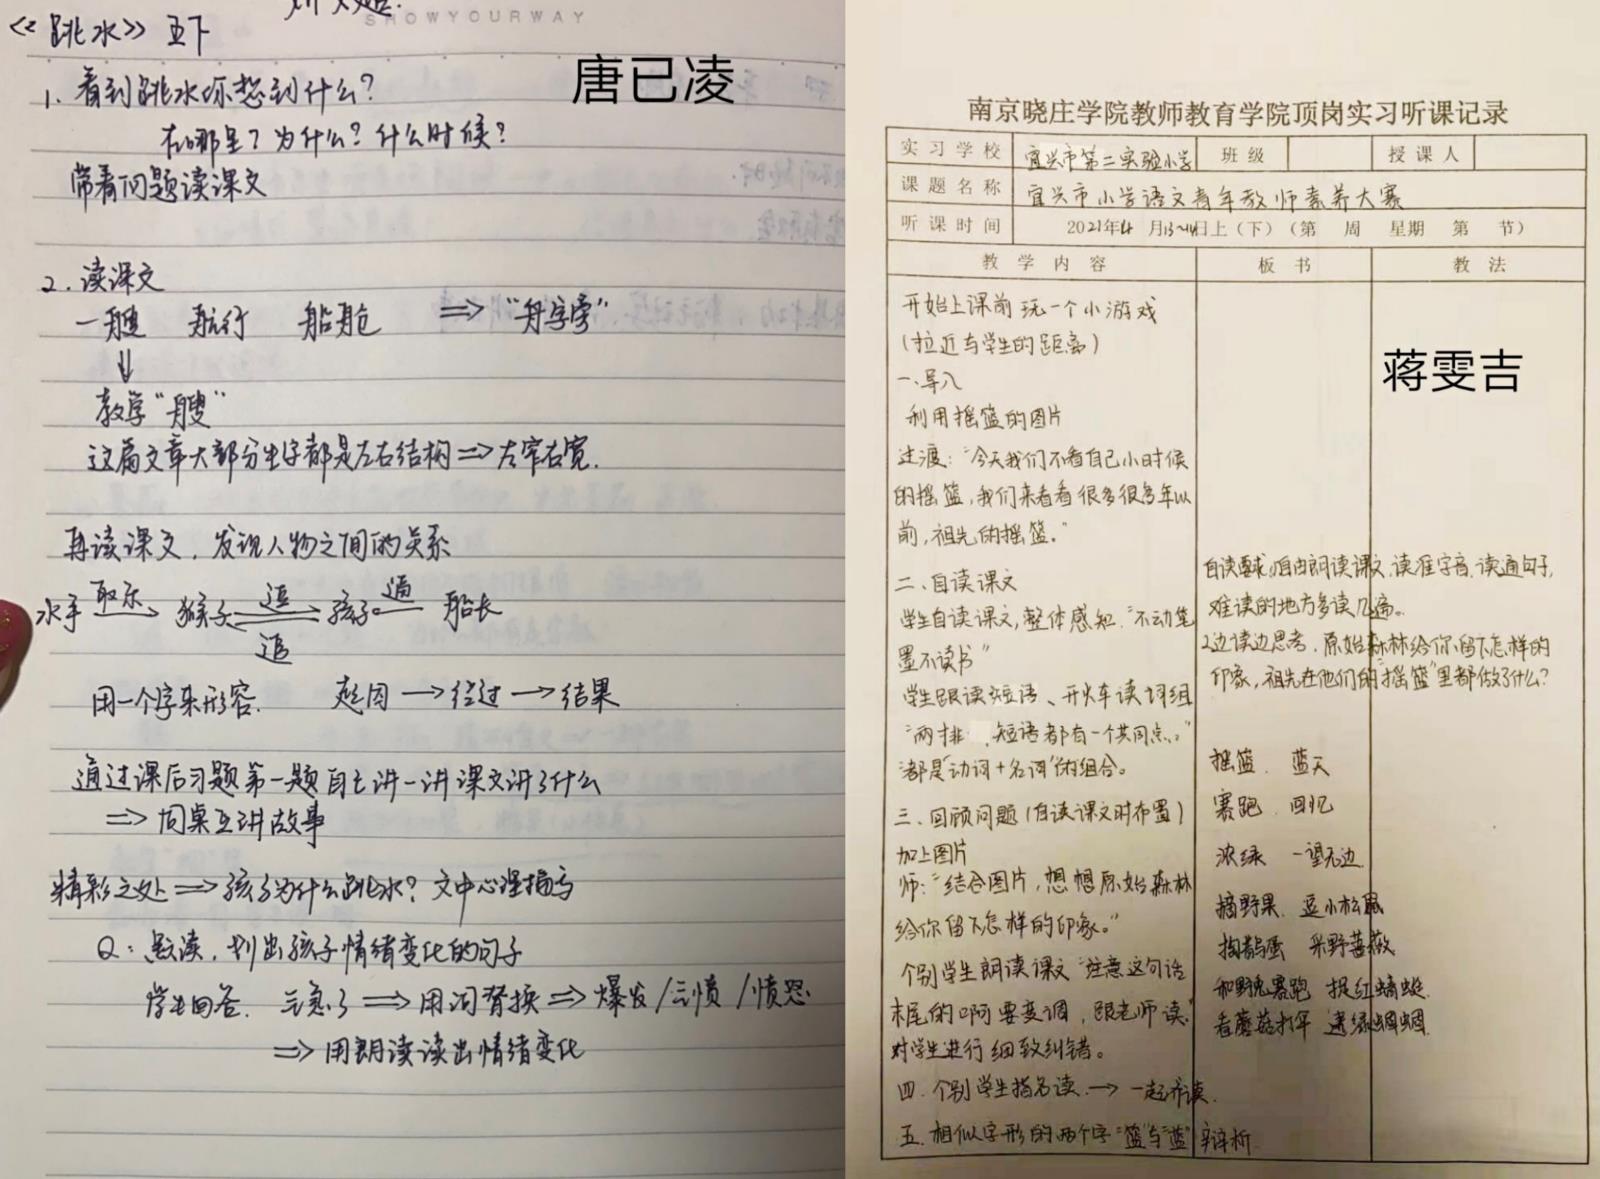 SHOWYOURWAY
《跳水》 五下
唐已凌
1. 看到跳水你想到什么？
在哪里？为什么？什么时候？
带着问题读课文
2. 读课文
一艘 航行 船舱 ⇒ “舟字旁”
⇓
教学“艘”
这篇文章大部分生字都是左右结构⇒左窄右宽.
再读课文，发现人物之间的关系
水手 取乐→ 猴子 逗 追 孩子 逼 船长
用一个字来形容. 起因→经过→结果
通过课后习题第一题自己讲一讲课文讲了什么
⇒ 同桌互讲故事
精彩之处⇒孩子为什么跳水？文中心理描写
Q：默读，划出孩子情绪变化的句子
学生回答. 气急了⇒用词替换⇒爆发/气愤/愤怒
⇒用朗读读出情绪变化
南京晓庄学院教师教育学院顶岗实习听课记录
实习学校 宜兴市第二实验小学 班级 授课人
课题名称 宜兴市小学语文青年教师素养大赛
听课时间 2021年4月13~14日上（下）（第 周 星期 第 节）
教学内容 板书 教法
蒋雯吉
开始上课前玩一个小游戏
（拉近与学生的距离）
一.导入
利用摇篮的图片
过渡：“今天我们不看自己小时候
的摇篮，我们来看看很多很多年以
前，祖先的摇篮。”
二.自读课文
学生自读课文，整体感知.“不动笔
墨不读书”
学生跟读短语、开火车读词组
“两排 短语都有一个共同点。”
都是“动词+名词”的组合。
三.回顾问题（自读课文时布置）
加上图片
师：“结合图片，想想原始森林
给你留下怎样的印象。”
个别学生朗读课文“注意这句话
末尾的啊要变调，跟老师读”
对学生进行细致纠错。
四.个别学生指名读.→一起齐读.
五.相似字形的两个字“篮”与“蓝”辩析.
自读要求：1.自由朗读课文，读准字音，读通句子，
难读的地方多读几遍。
2.边读边思考，原始森林给你留下怎样的
印象，祖先在他们的“摇篮”里都做了什么？
摇篮. 蓝天
赛跑. 回忆
浓绿 一望无边
摘野果. 逗小松鼠
掏鹊蛋 采野蔷薇
和野兔赛跑 捉红蜻蜓.
看蘑菇打伞 逮绿蝈蝈.